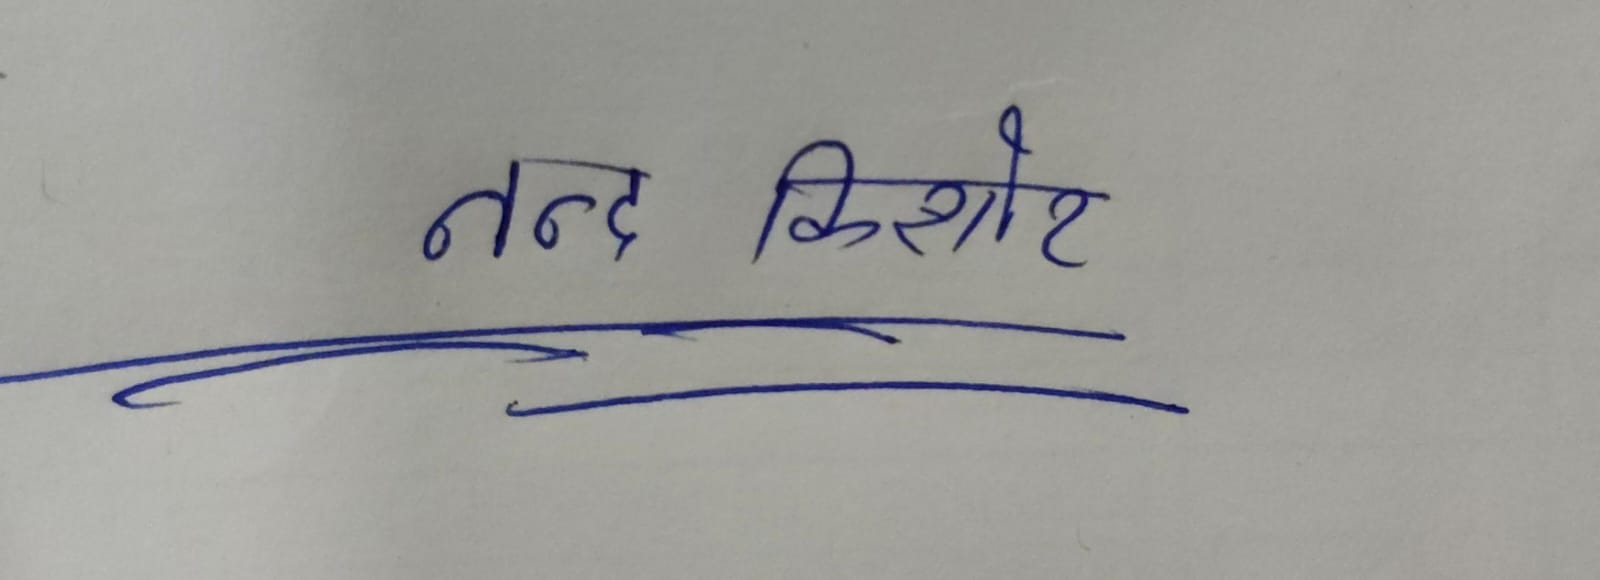 नन्द किशोर